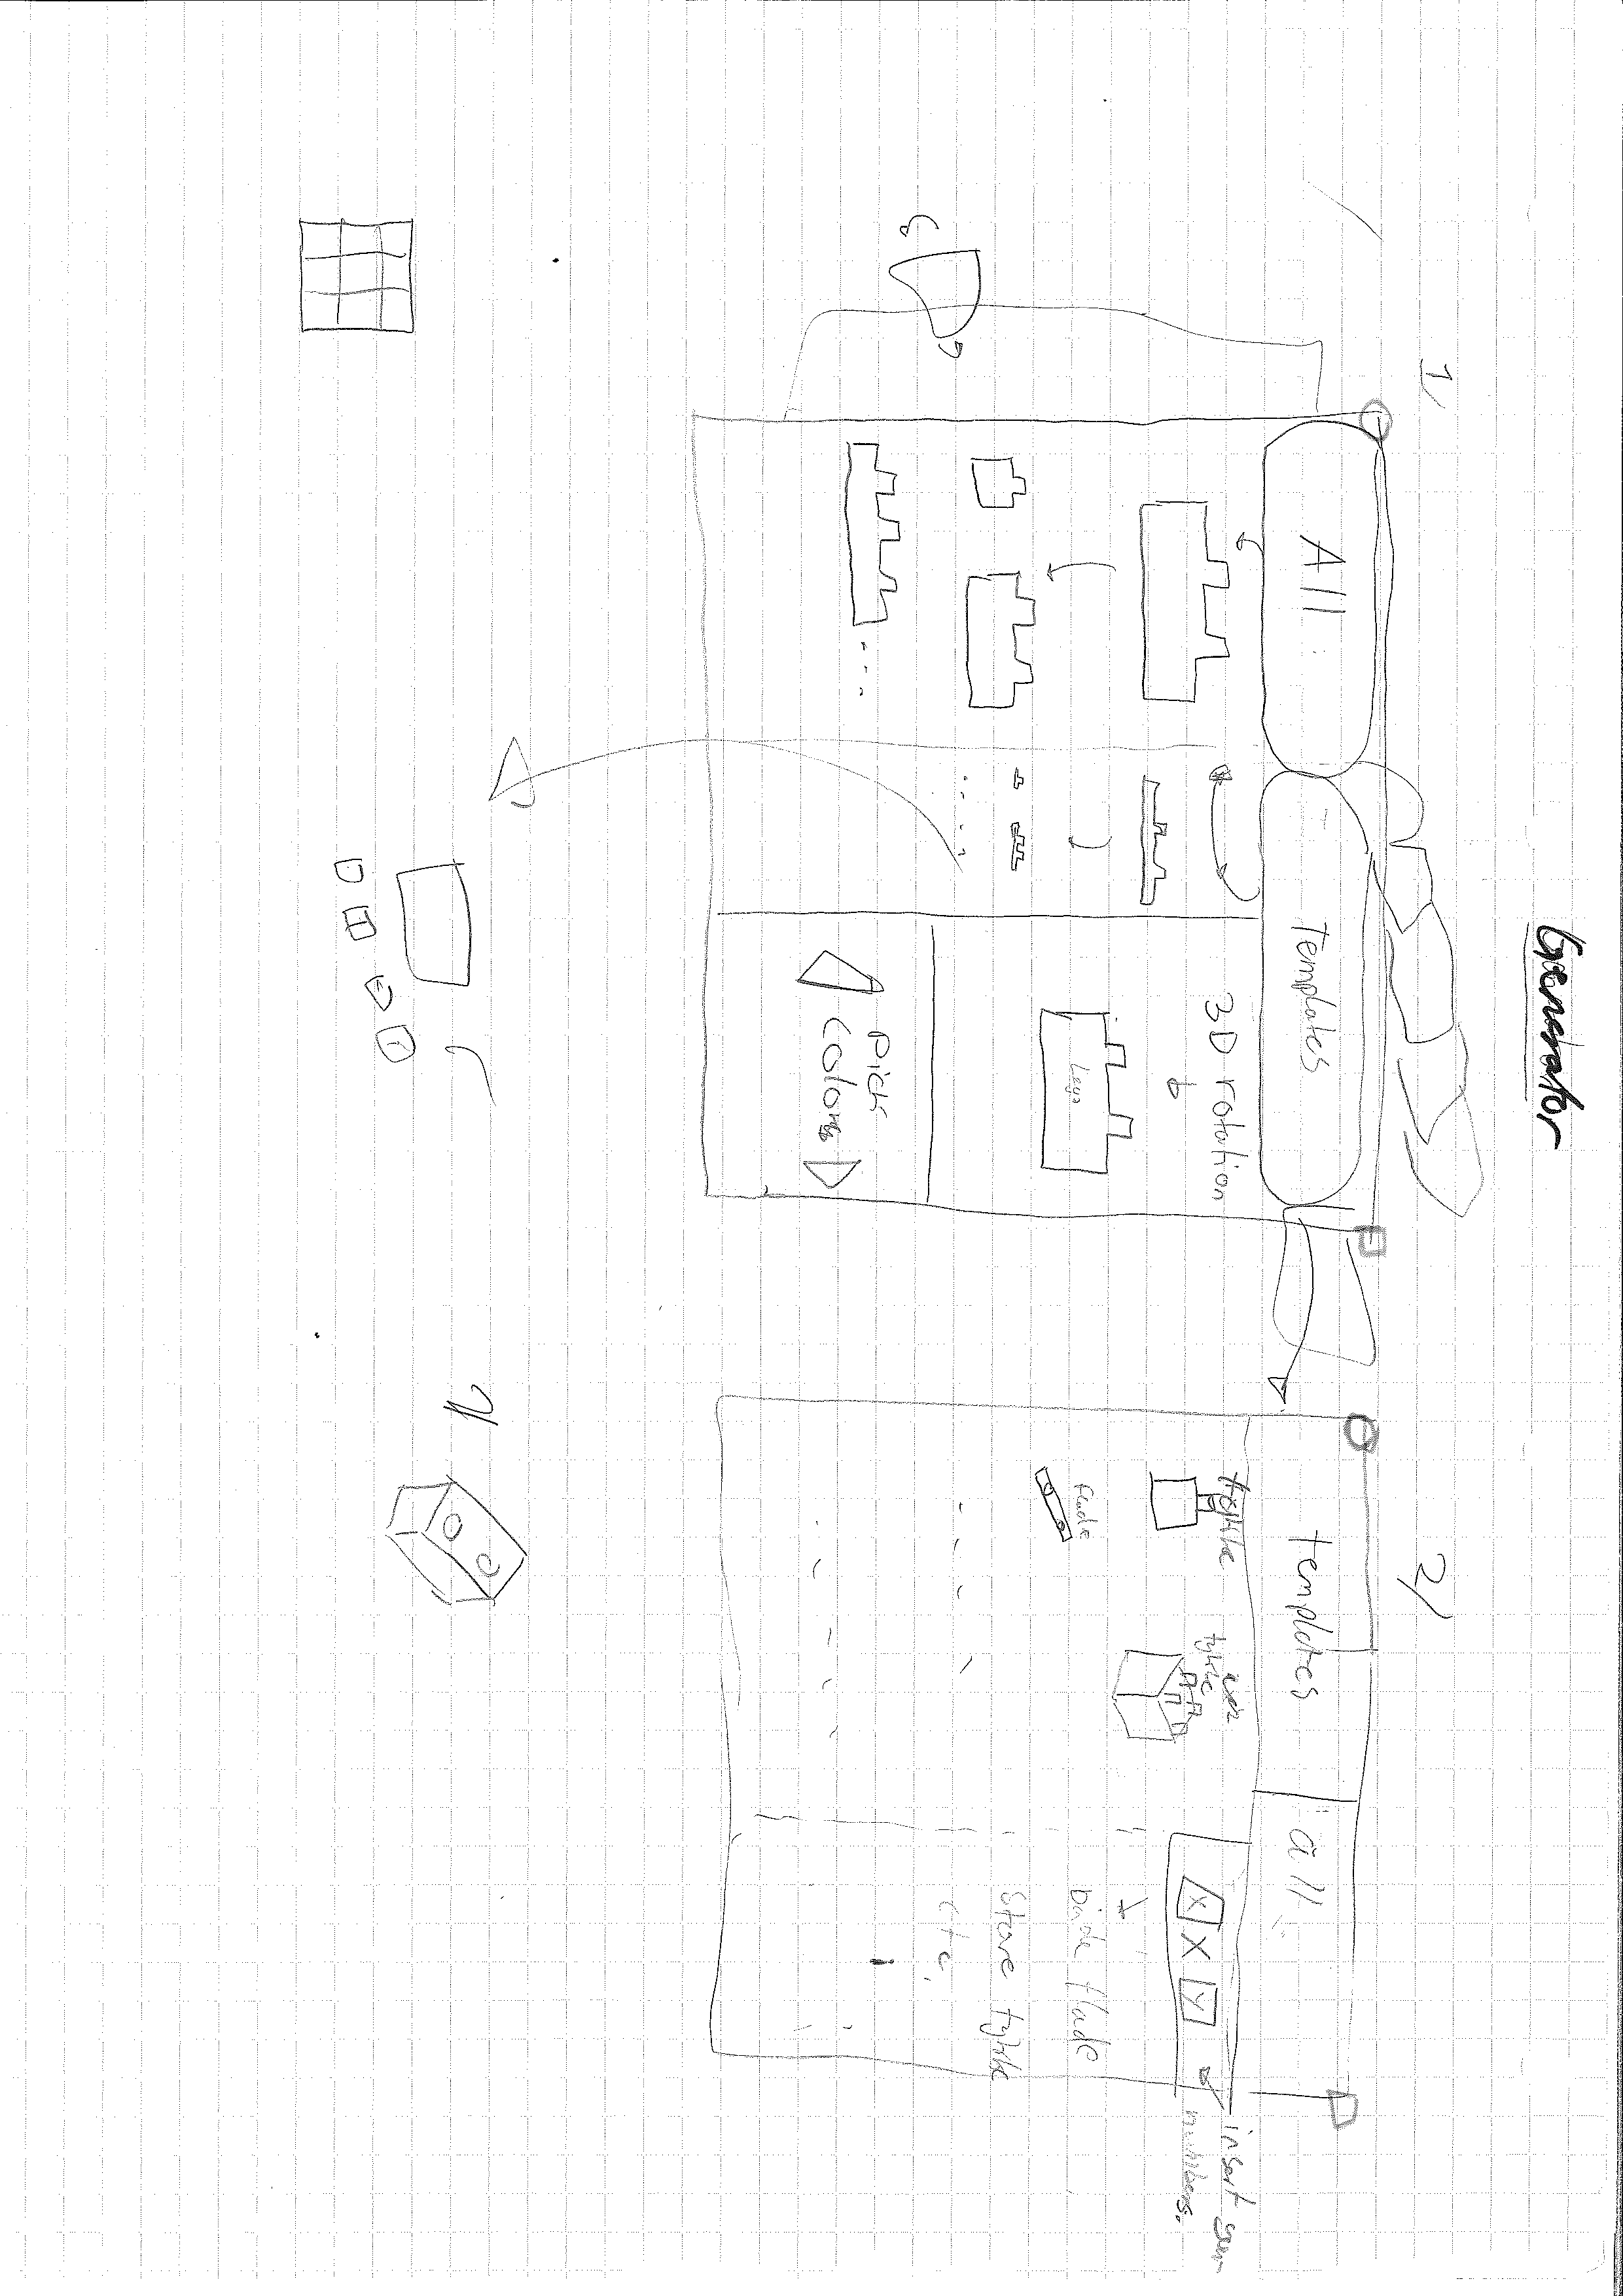 Generator
1)
All
Templates
3D rotation
Lego
pick
colors
2)
Templates
all
tykke
tykke
flade
X X Y
insert
numbers.
bløde flade
Store tykke
etc.